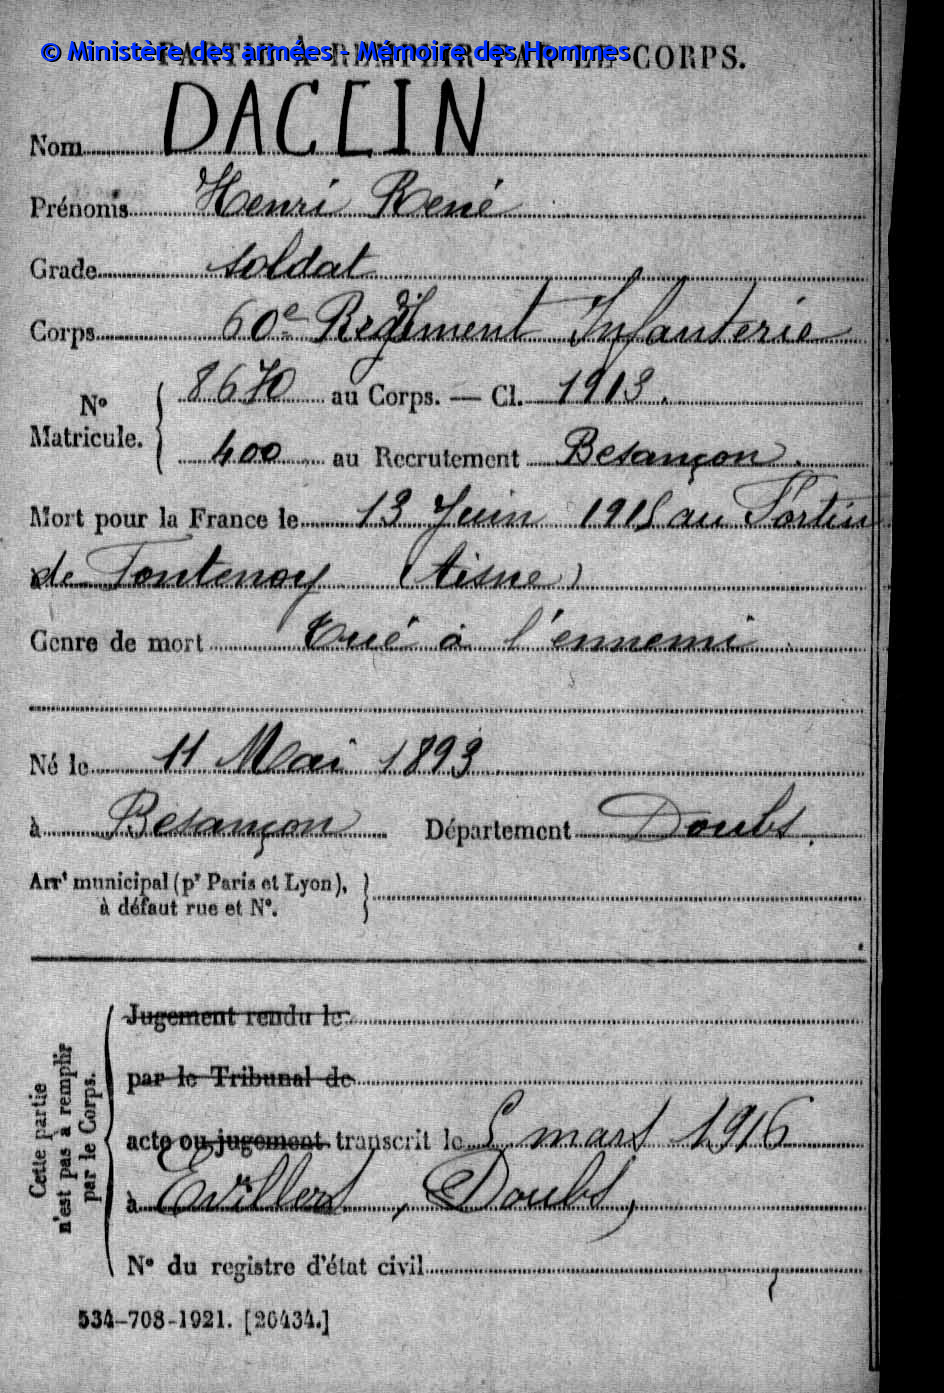 © Ministère des armées - Mémoire des Hommes
PARTIE À REMPLIR PAR LE CORPS.
Nom DACLIN
Prénoms Henri René
Grade soldat
Corps 60e Régiment Infanterie
N° Matricule. 8670 au Corps. — Cl. 1913.
400 au Recrutement Besançon.
Mort pour la France le 13 Juin 1915 au Fortin
de Fontenoy (Aisne)
Genre de mort Tué à l'ennemi
Né le 11 Mai 1893
à Besançon Département Doubs.
Arrt municipal (pr Paris et Lyon),
à défaut rue et N°.
Cette partie
n'est pas à remplir
par le Corps.
Jugement rendu le
par le Tribunal de
acte ou jugement transcrit le 5 mars 1916
à Evillers, Doubs,
N° du registre d'état civil
534-708-1921. [26434.]